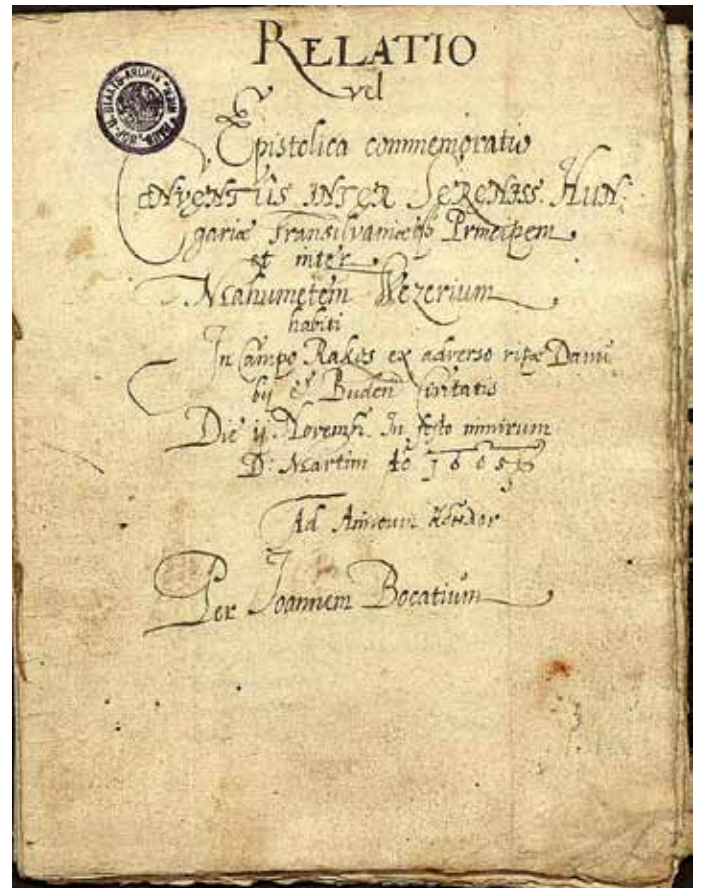 RELATIO
vel
Epistolica commemoratio
CONVENTUS INTER SERENISS. HUN:
gariæ Transilvaniæq Principem
et inter
Mahumetem Vezerium
habiti
In Campo Rakos ex adverso ripæ Danu
bij & Buden Civitatis
Die ij. Novemb. In festo nimirum
D: Martini Aō 1605
Ad Amicum
Per Joannem Bocatium